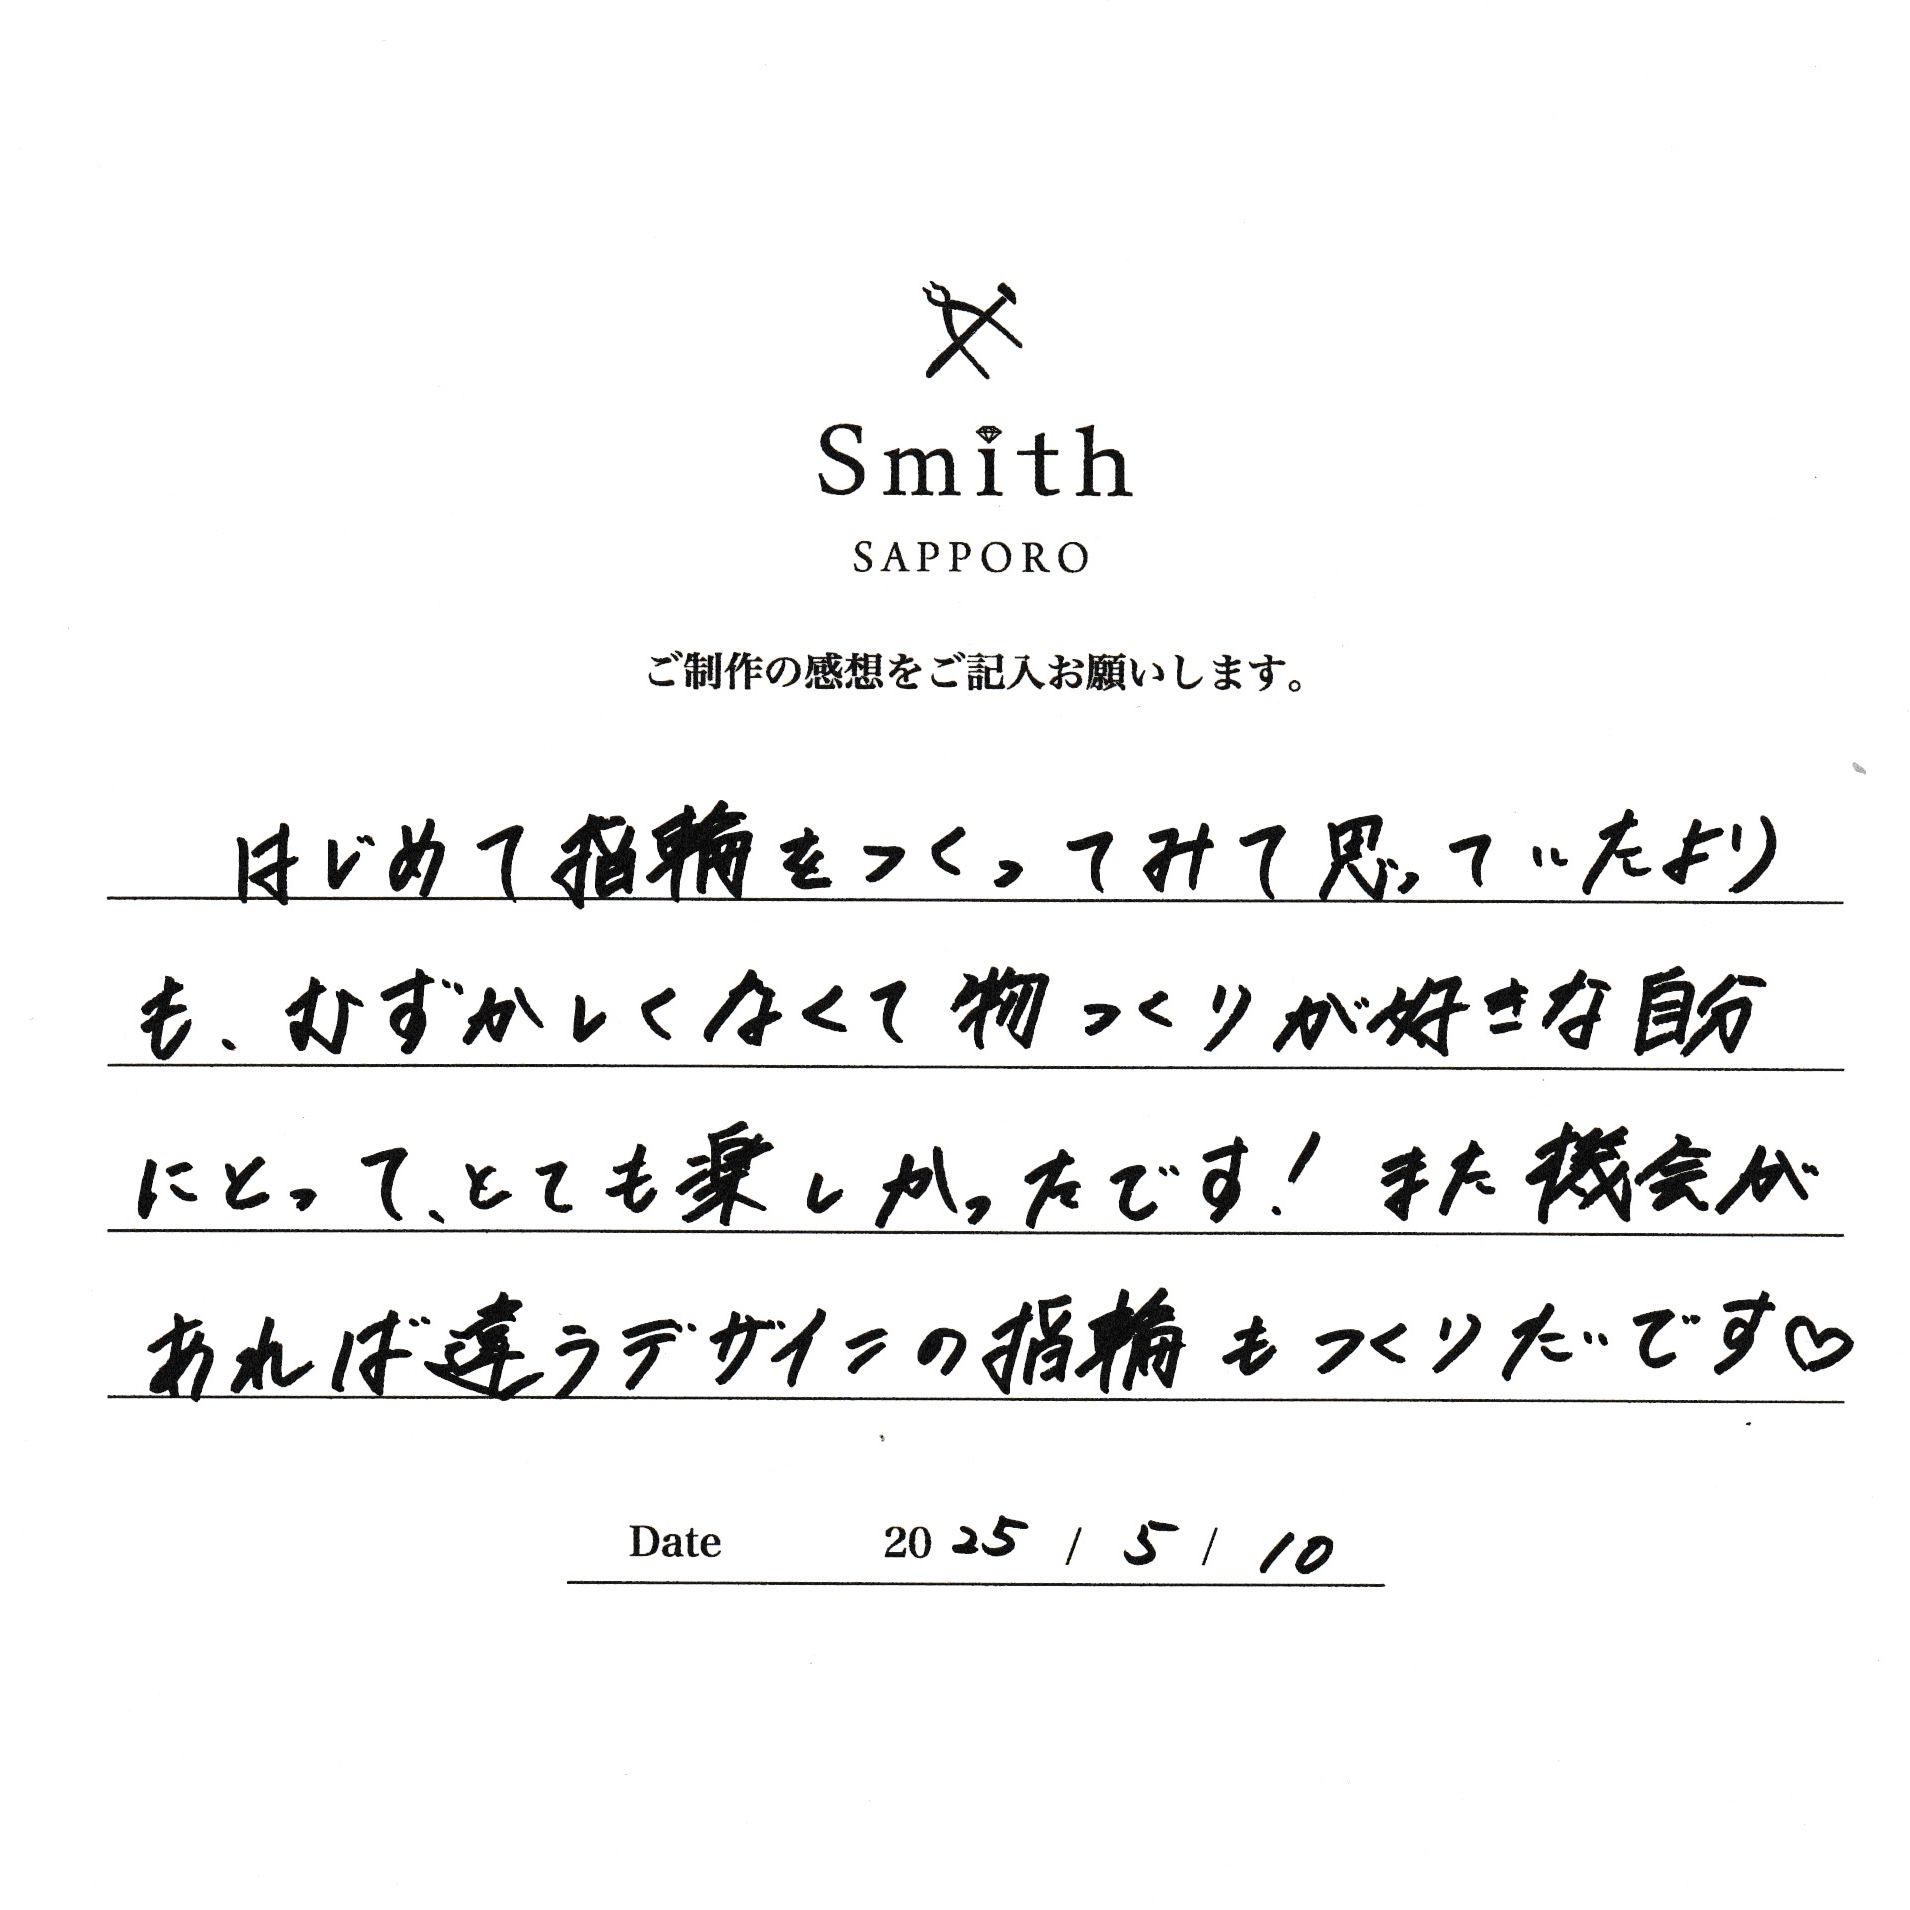 Smith
SAPPORO
ご制作の感想をご記入お願いします。
はじめて指輪をつくってみて思っていたより
も、むずかしくなくて物つくりが好きな自分
にとって、とても楽しかったです！また機会が
あれば違うデザインの指輪もつくりたいです♡
Date 2025 / 5 / 10